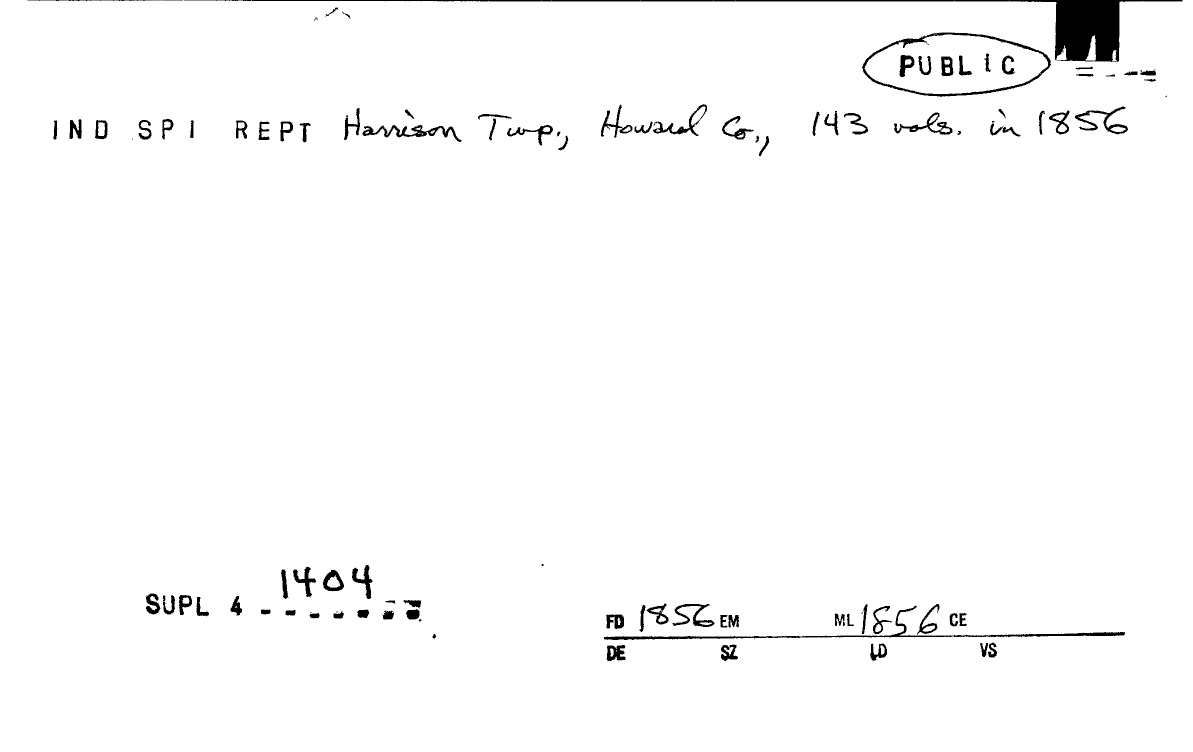 PUBLIC
IND SPI REPT Harrison Twp., Howard Co., 143 vols. in 1856
1404
SUPL 4
FD 1856 EM ML 1856 CE
DE SZ LD VS